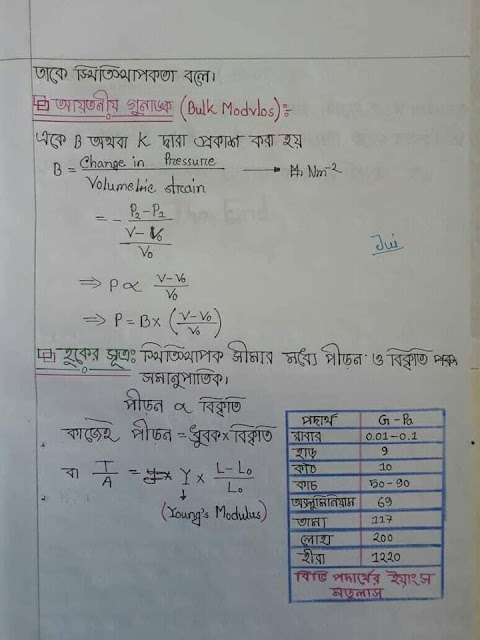 তাকে স্থিতিস্থাপকতা বলে।
আয়তনীয় গুনাঙ্ক (Bulk Modulos):-
একে B অথবা K দ্বারা প্রকাশ করা হয়
B = Change in Pressure / Volumetric strain → Nm⁻²
= - (P₂-P₁) / ((V-V₀)/V₀)
Jui
⇒ P ∝ (V-V₀)/V₀
⇒ P = B× ((V-V₀)/V₀)
হুকের সূত্র: স্থিতিস্থাপক সীমার মধ্যে পীড়ন ও বিকৃতি
সমানুপাতিক।
পীড়ন ∝ বিকৃতি
কাজেই পীড়ন = ধ্রুবক × বিকৃতি
বা T/A = Y × (L-L₀)/L₀
(Young's Modulus)
পদার্থ G-Pa
রাবার 0.01-0.1
হাড় 9
কাঠ 10
কাচ 50-90
অ্যালুমিনিয়াম 69
তামা 117
লোহা 200
হীরা 1220
বিভি পদার্থের ইয়াংস
মডুলাস